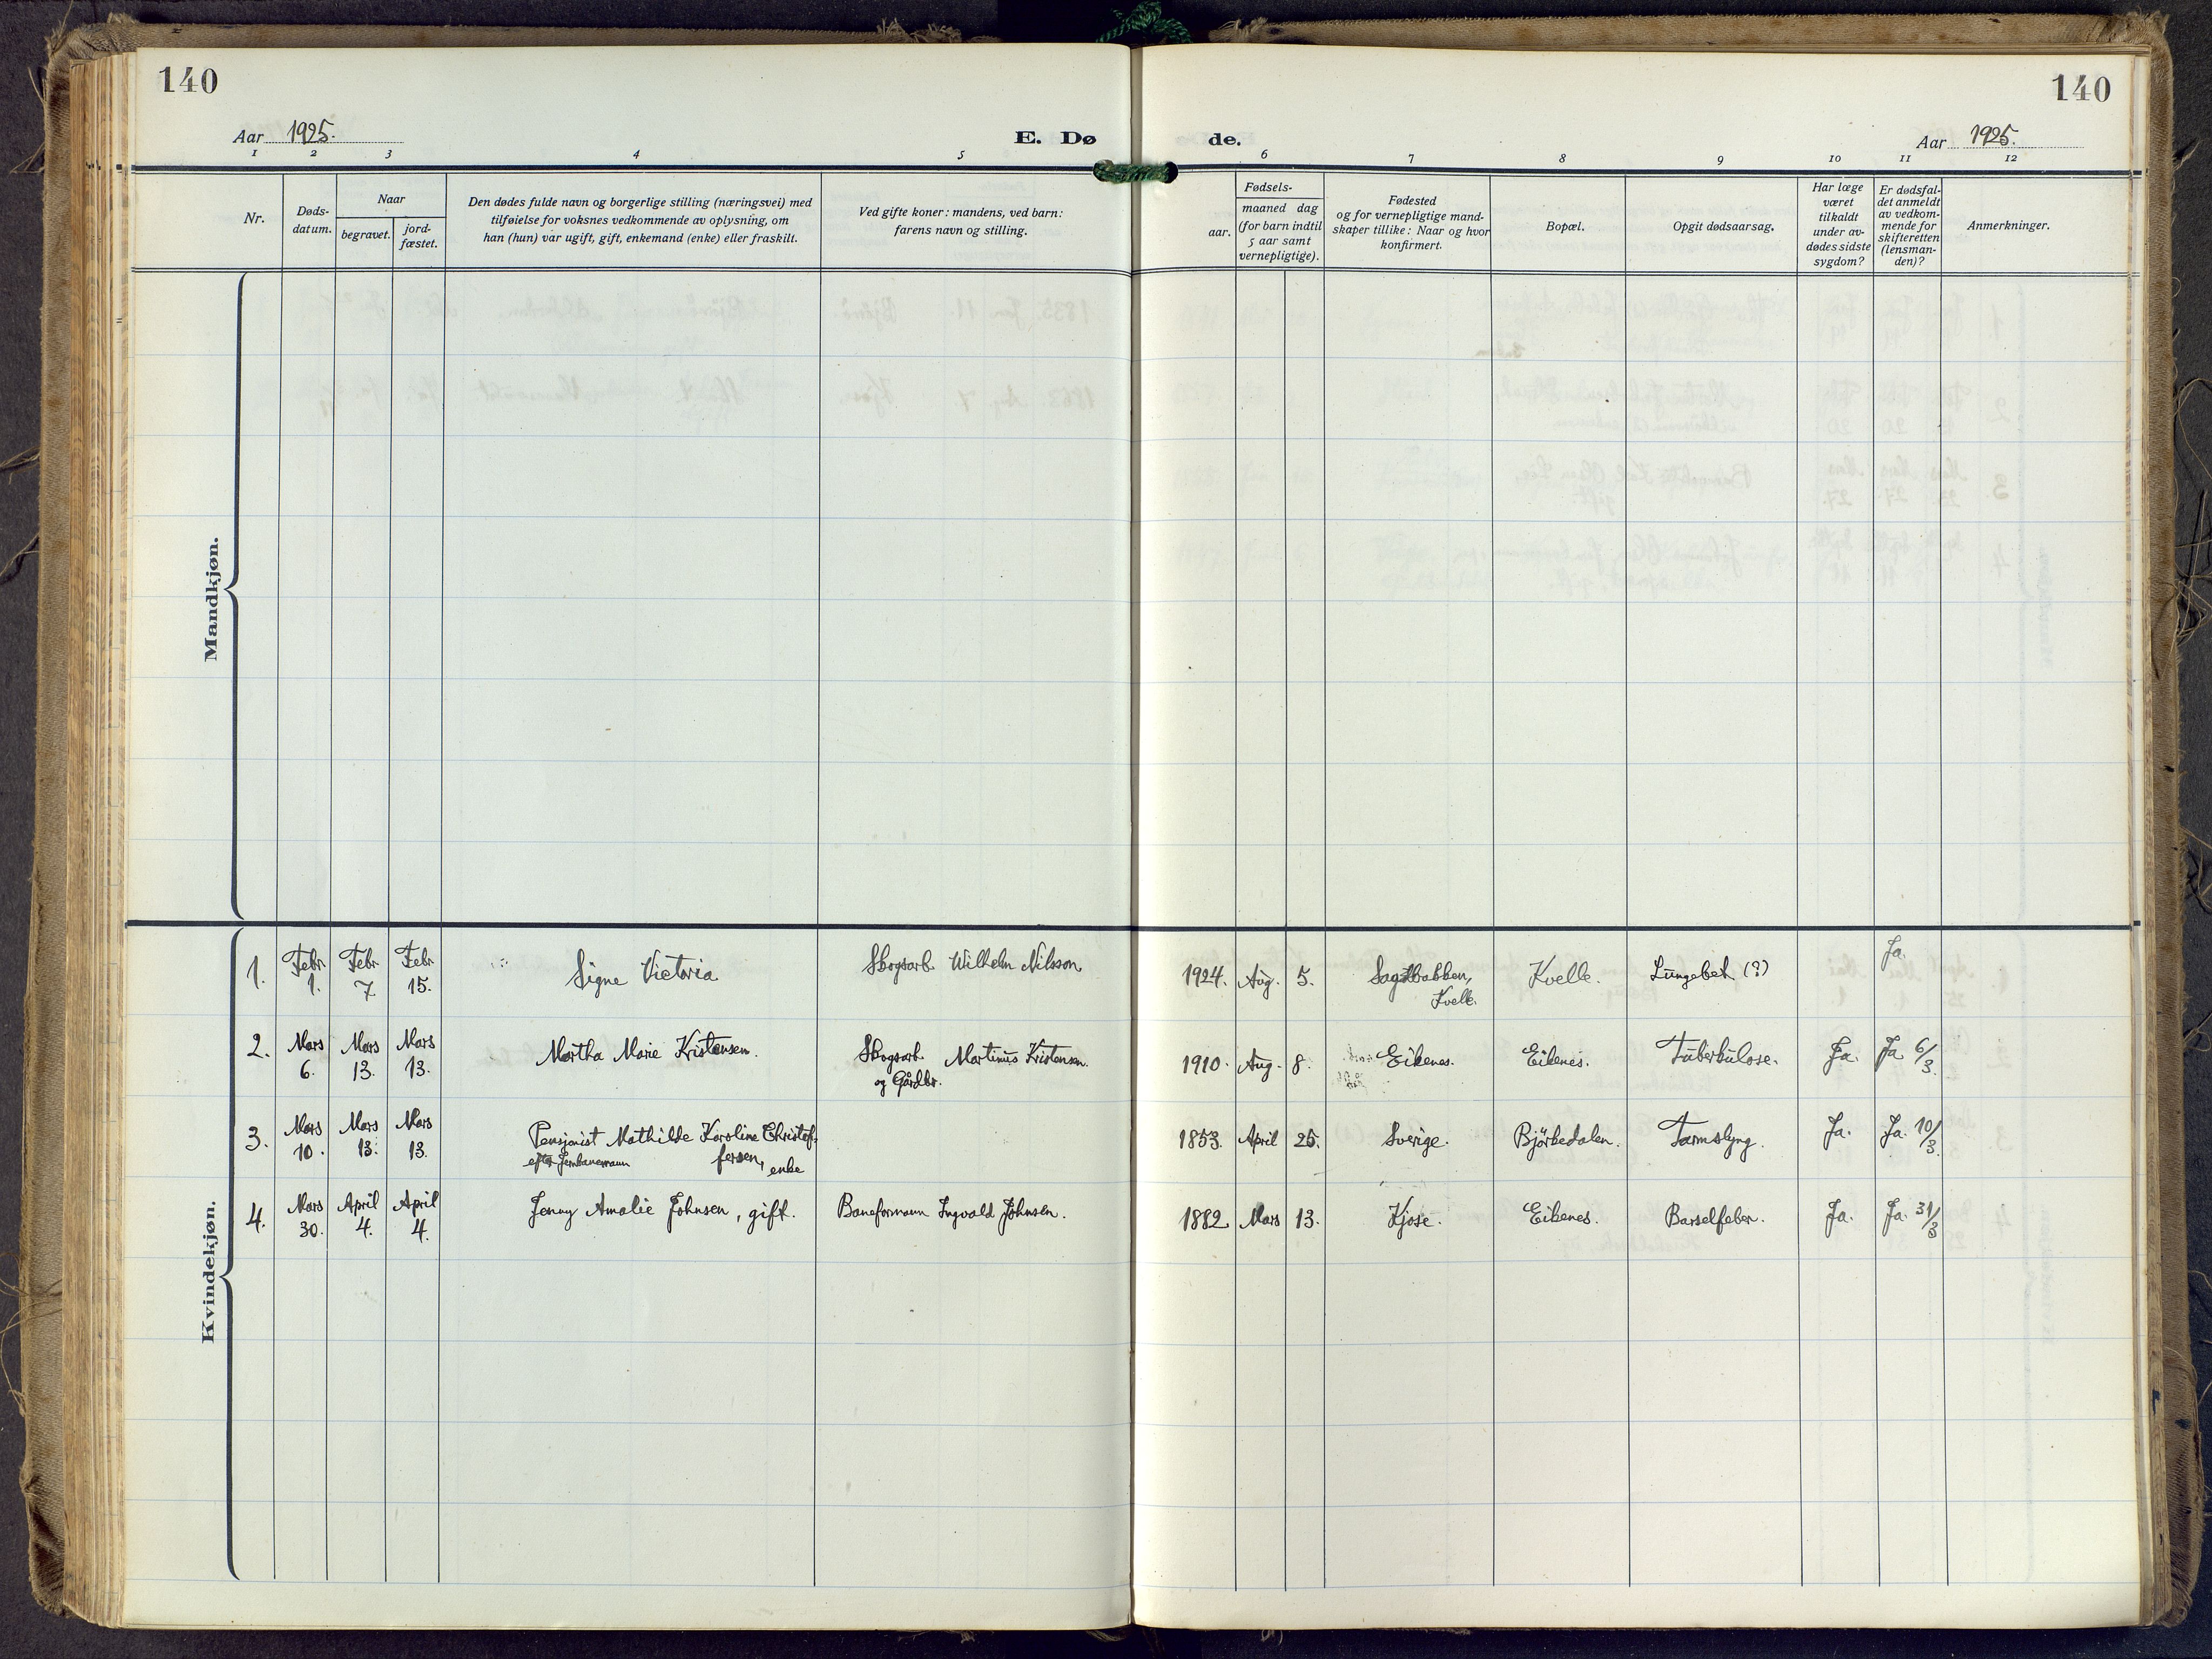 140
140
Aar 1925.
E. Dø
de.
Aar 1925.
1 2 3 4 5 6 7 8 9 10 11 12
Nr.
Døds-
datum.
Naar
begravet.
jord-
fæstet.
Den dødes fulde navn og borgerlige stilling (næringsvei) med
tilføielse for voksnes vedkommende av oplysning, om
han (hun) var ugift, gift, enkemand (enke) eller fraskilt.
Ved gifte koner: mandens, ved barn:
farens navn og stilling.
Fødsels-
aar.
maaned dag
(for barn indtil
5 aar samt
vernepligtige).
Fødested
og for vernepligtige mand-
skaper tillike: Naar og hvor
konfirmert.
Bopæl.
Opgit dødsaarsag.
Har læge
været
tilkaldt
under av-
dødes sidste
sygdom?
Er dødsfal-
det anmeldt
av vedkom-
mende for
skifteretten
(lensman-
den)?
Anmerkninger.
Mandkjøn.
Kvindekjøn.
1. Febr. 1. Febr. 7. Febr. 15. Signe Victoria Skogsarb. Wilhelm Nilsson 1924. Aug. 5. Sagabakken, Kvelle. Lungebet. (?) Ja.
Kvelle.
2. Mars 6. Mars 13. Mars 13. Martha Marie Kristensen. Skogsarb. Martinius Kristensen. 1910. Aug. 8. Eikenes. Eikenes. Tuberkulose. Ja. Ja 6/3.
og Gårdbr.
3. Mars 10. Mars 13. Mars 13. Pensjonist Mathilde Karoline Christof- 1853. April 25. Sverige. Björkedalen. Tarmslyng. Ja. Ja. 10/3.
efter Jernbanemann fersen, enke
4. Mars 30. April 4. April 4. Jenny Amalie Johnsen, gift. Baneformann Ingvald Johnsen. 1882 Mars 13. Kjose. Eikenes. Barselfeber. Ja. Ja. 31/3